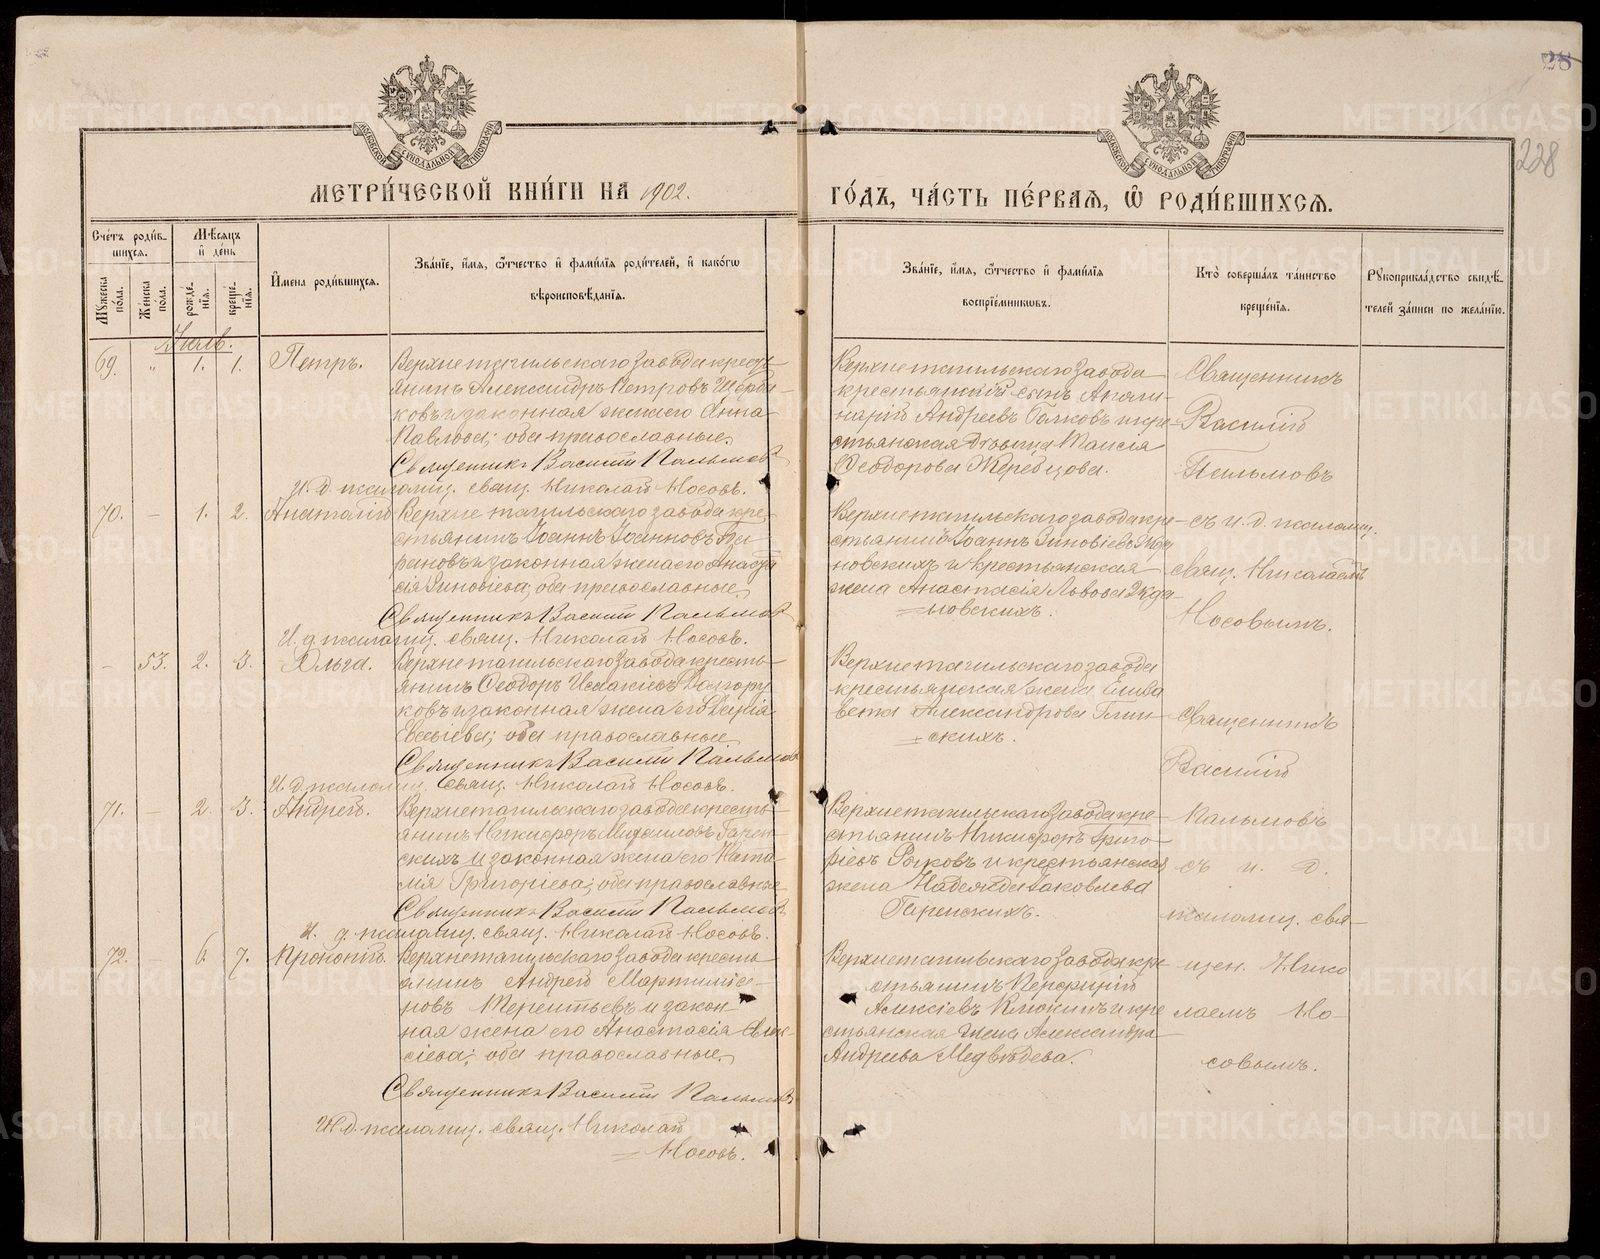 28
228
МОСКОВСКОЙ СѴНОДАЛЬНОЙ ТИПОГРАФІИ
МОСКОВСКОЙ СѴНОДАЛЬНОЙ ТИПОГРАФІИ
МЕТРИ́ЧЕСКОЙ КНИ́ГИ НА 1902.
ГО́ДЪ, ЧА́СТЬ ПЕ́РВАѦ, Ѡ҆ РОДИ́ВШИХСѦ.
Сче́тъ роди́в-
шихсѧ.
Мѣ́сѧцъ
и҆ де́нь
Мꙋ́жеска по́ла.
Же́нска по́ла.
рожде́-
нїѧ.
креще́-
нїѧ.
И҆мена̀ роди́вшихсѧ.
Зва́нїе, и҆́мѧ, ѻ҆́тчество и҆ фами́лїѧ роди́телей, и҆ како́гѡ
вѣроисповѣ́данїѧ.
Зва́нїе, и҆́мѧ, ѻ҆́тчество и҆ фами́лїѧ
воспрїе́мникѡвъ.
Кто̀ соверша́лъ та́инство
креще́нїѧ.
Рꙋкоприкла́дство свидѣ́-
телей за́писи по жела́нїю.
Іюль.
69. " 1. 1. Петръ.
Верхнетагильскаго завода кресть-
янинъ Александръ Петровъ Щерба-
ковъ и законная жена его Анна
Павлова; оба православные.
Священникъ Василій Пальмовъ
И. д. псаломщ. свящ. Николай Носовъ.
Верхнетагильскаго завода
крестьянскій сынъ Аполи-
нарій Андреевъ Балковъ и кре-
стьянская дѣвица Таисія
Ѳеодорова Жеребцова.
Священникъ
Василій
Пальмовъ
70. - 1. 2. Анатолій
Верхнетагильскаго завода кре-
стьянинъ Іоаннъ Іоанновъ
и законная жена его Анаста-
сія Зиновіева; оба православные.
Священникъ Василій Пальмовъ
И. д. псаломщ. свящ. Николай Носовъ.
Верхнетагильскаго завода кре-
стьянинъ Іоаннъ Зиновіевъ Жда-
новскихъ и крестьянская
жена Анастасія Львова Жда-
новскихъ.
съ и. д. псаломщ.
свящ. Николаемъ
Носовымъ.
- 53. 2. 3. Ольга.
Верхнетагильскаго завода кресть-
янинъ Ѳеодоръ Исаакіевъ Долгору-
ковъ и законная жена его
оба православные.
Священникъ Василій Пальмовъ
И. д. псаломщ. свящ. Николай Носовъ.
Верхнетагильскаго завода
крестьянская жена Елиза-
вета Александрова Глин-
скихъ.
Священникъ
Василій
71. - 2. 3. Андрей.
Верхнетагильскаго завода кресть-
янинъ Никифоръ Михаиловъ Гарен-
скихъ и законная жена его Ната-
лія Григоріева; оба православные
Священникъ Василій Пальмовъ
И. д. псаломщ. свящ. Николай Носовъ.
Верхнетагильскаго завода кре-
стьянинъ Никифоръ Григо-
ріевъ Рожковъ и крестьянская
жена Надежда Іаковлева
Гаренскихъ.
Пальмовъ
съ и. д.
псаломщ. свя-
72. - 6. 7. Прокопій.
Верхнетагильскаго завода кресть-
янинъ Андрей Мартиніа-
новъ Терентьевъ и закон-
ная жена его Анастасія Алек-
сіева; оба православные.
Священникъ Василій Пальмовъ
И. д. псаломщ. свящ. Николай
Носовъ.
Верхнетагильскаго завода кре-
стьянинъ Порфирій
Алексіевъ Клюкинъ и кре-
стьянская жена Александра
Андреева Медвѣдева.
щен. Нико-
лаемъ Но-
совымъ.
METRIKI.GASO-URAL.RU